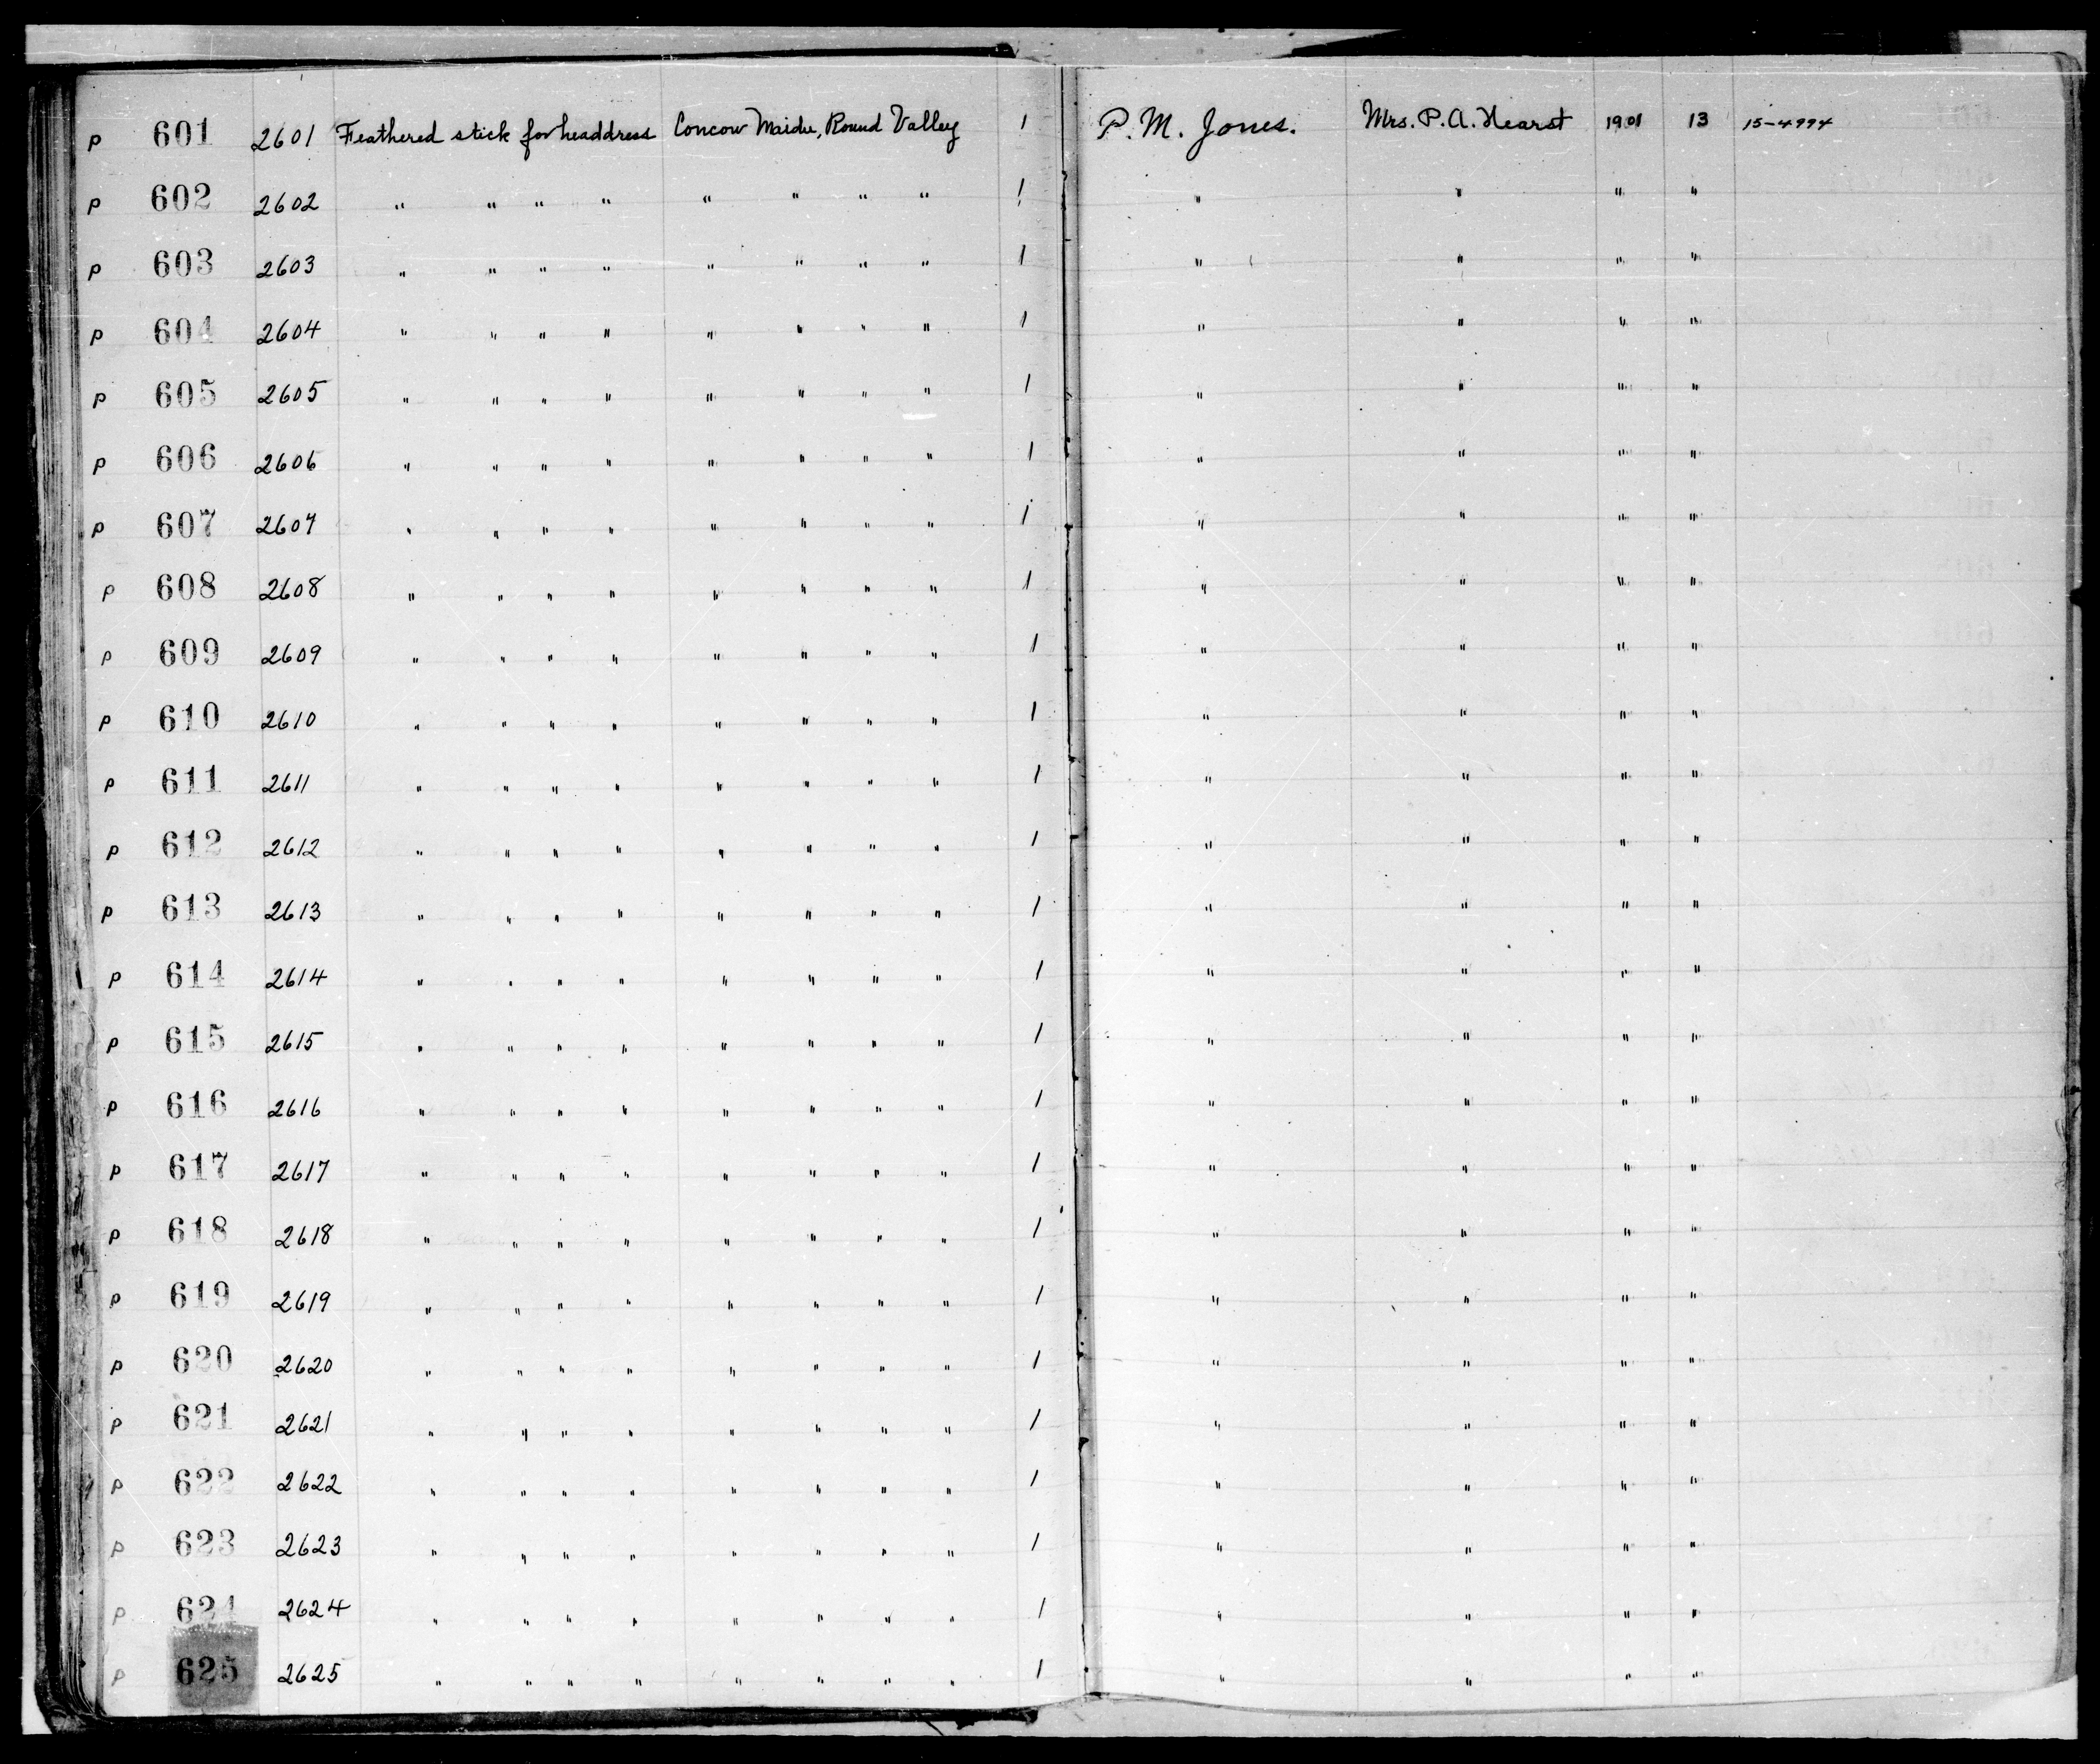 P 601 2601 Feathered stick for headdress Concow Maidu, Round Valley 1 P. M. Jones. Mrs. P. A. Hearst 1901 13 15-4994
P 602 2602 " " " " " " " " 1 " " " "
P 603 2603 " " " " " " " " 1 " " " "
P 604 2604 " " " " " " " " 1 " " " "
P 605 2605 " " " " " " " " 1 " " " "
P 606 2606 " " " " " " " " 1 " " " "
P 607 2607 " " " " " " " " 1 " " " "
P 608 2608 " " " " " " " " 1 " " " "
P 609 2609 " " " " " " " " 1 " " " "
P 610 2610 " " " " " " " " 1 " " " "
P 611 2611 " " " " " " " " 1 " " " "
P 612 2612 " " " " " " " " 1 " " " "
P 613 2613 " " " " " " " " 1 " " " "
P 614 2614 " " " " " " " " 1 " " " "
P 615 2615 " " " " " " " " 1 " " " "
P 616 2616 " " " " " " " " 1 " " " "
P 617 2617 " " " " " " " " 1 " " " "
P 618 2618 " " " " " " " " 1 " " " "
P 619 2619 " " " " " " " " 1 " " " "
P 620 2620 " " " " " " " " 1 " " " "
P 621 2621 " " " " " " " " 1 " " " "
P 622 2622 " " " " " " " " 1 " " " "
P 623 2623 " " " " " " " " 1 " " " "
P 624 2624 " " " " " " " " 1 " " " "
P 625 2625 " " " " " " " " 1 " " " "